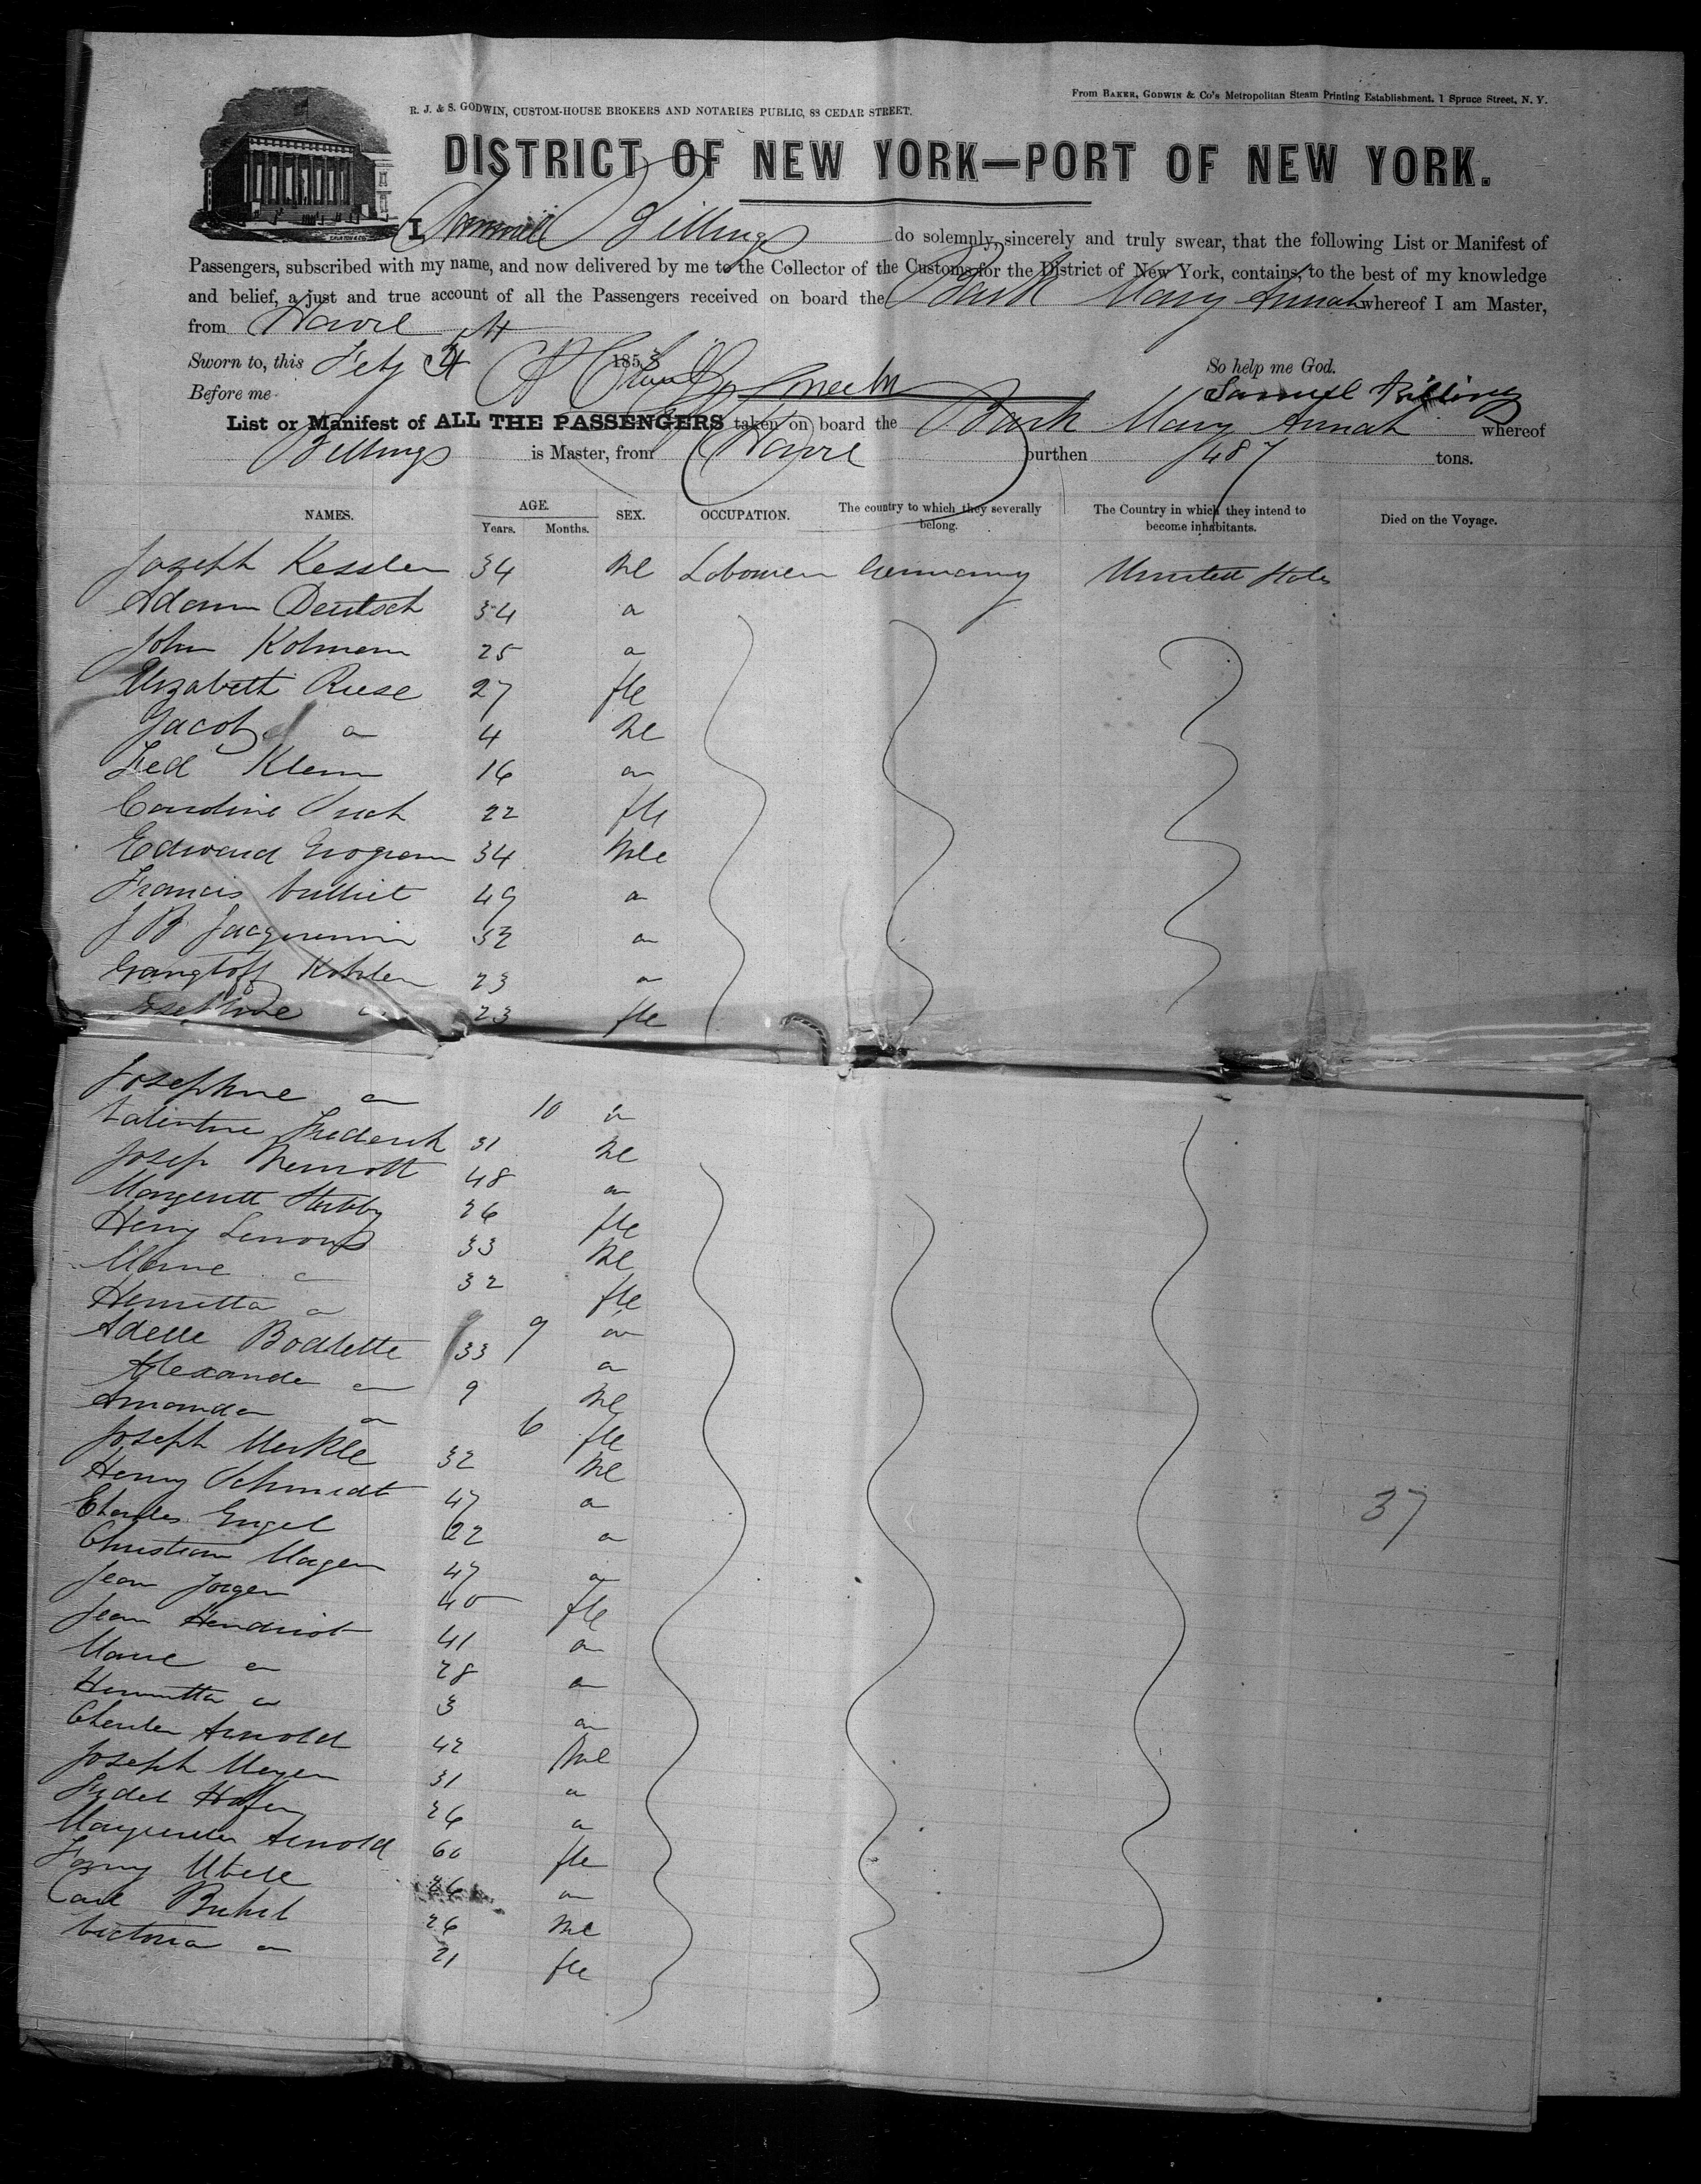 R. J. & S. GODWIN, CUSTOM-HOUSE BROKERS AND NOTARIES PUBLIC, 88 CEDAR STREET.
From BAKER, GODWIN & Co's Metropolitan Steam Printing Establishment, 1 Spruce Street, N. Y.
DISTRICT OF NEW YORK—PORT OF NEW YORK.
I, Samuel Billings do solemnly, sincerely and truly swear, that the following List or Manifest of
Passengers, subscribed with my name, and now delivered by me to the Collector of the Customs for the District of New York, contains, to the best of my knowledge
and belief, a just and true account of all the Passengers received on board the Bark Mary Annah whereof I am Master,
from Havre
Sworn to, this Feby 1853 So help me God.
Before me Samuel Billings
List or Manifest of ALL THE PASSENGERS taken on board the Bark Mary Annah whereof
Billings is Master, from Havre burthen 487 tons.
NAMES. AGE. Years. Months. SEX. OCCUPATION. The country to which they severally belong. The Country in which they intend to become inhabitants. Died on the Voyage.
Joseph Kessler 34 Ml Germany States
Adam Deutsch 34 "
John Kolman 25 "
Elizabeth Ruse 27 fle
Jacob " 4 Ml
Fred Klem 16 "
Caroline 22 fle
Edward 34 Mle
Francis 49 "
J B Jacquemin 32 "
Kohler 23 "
23 fle
Josephine " 10 "
Valentine Frederick 31 Ml
Josep 48 "
26 fle
Henry 33 Ml
32 fle
Henrietta " 9 "
Adelle Bodlette 33 "
Alexander " 9 Ml
Amanda " 6 fle
Joseph Merkle 32 Ml
Henry Schmidt 47 "
Charles Engel 22 "
Christian Mayer 47 "
Jean 40 fle
Jean Hendriot 41 "
Marie " 28 "
Henrietta " 3 "
Charles Arnold 42 Ml
Joseph Meyer 31 "
Fidel 26 "
Arnold 60 fle
Ubele 26 "
Carl 26 Ml
Victoria " 21 fle
37